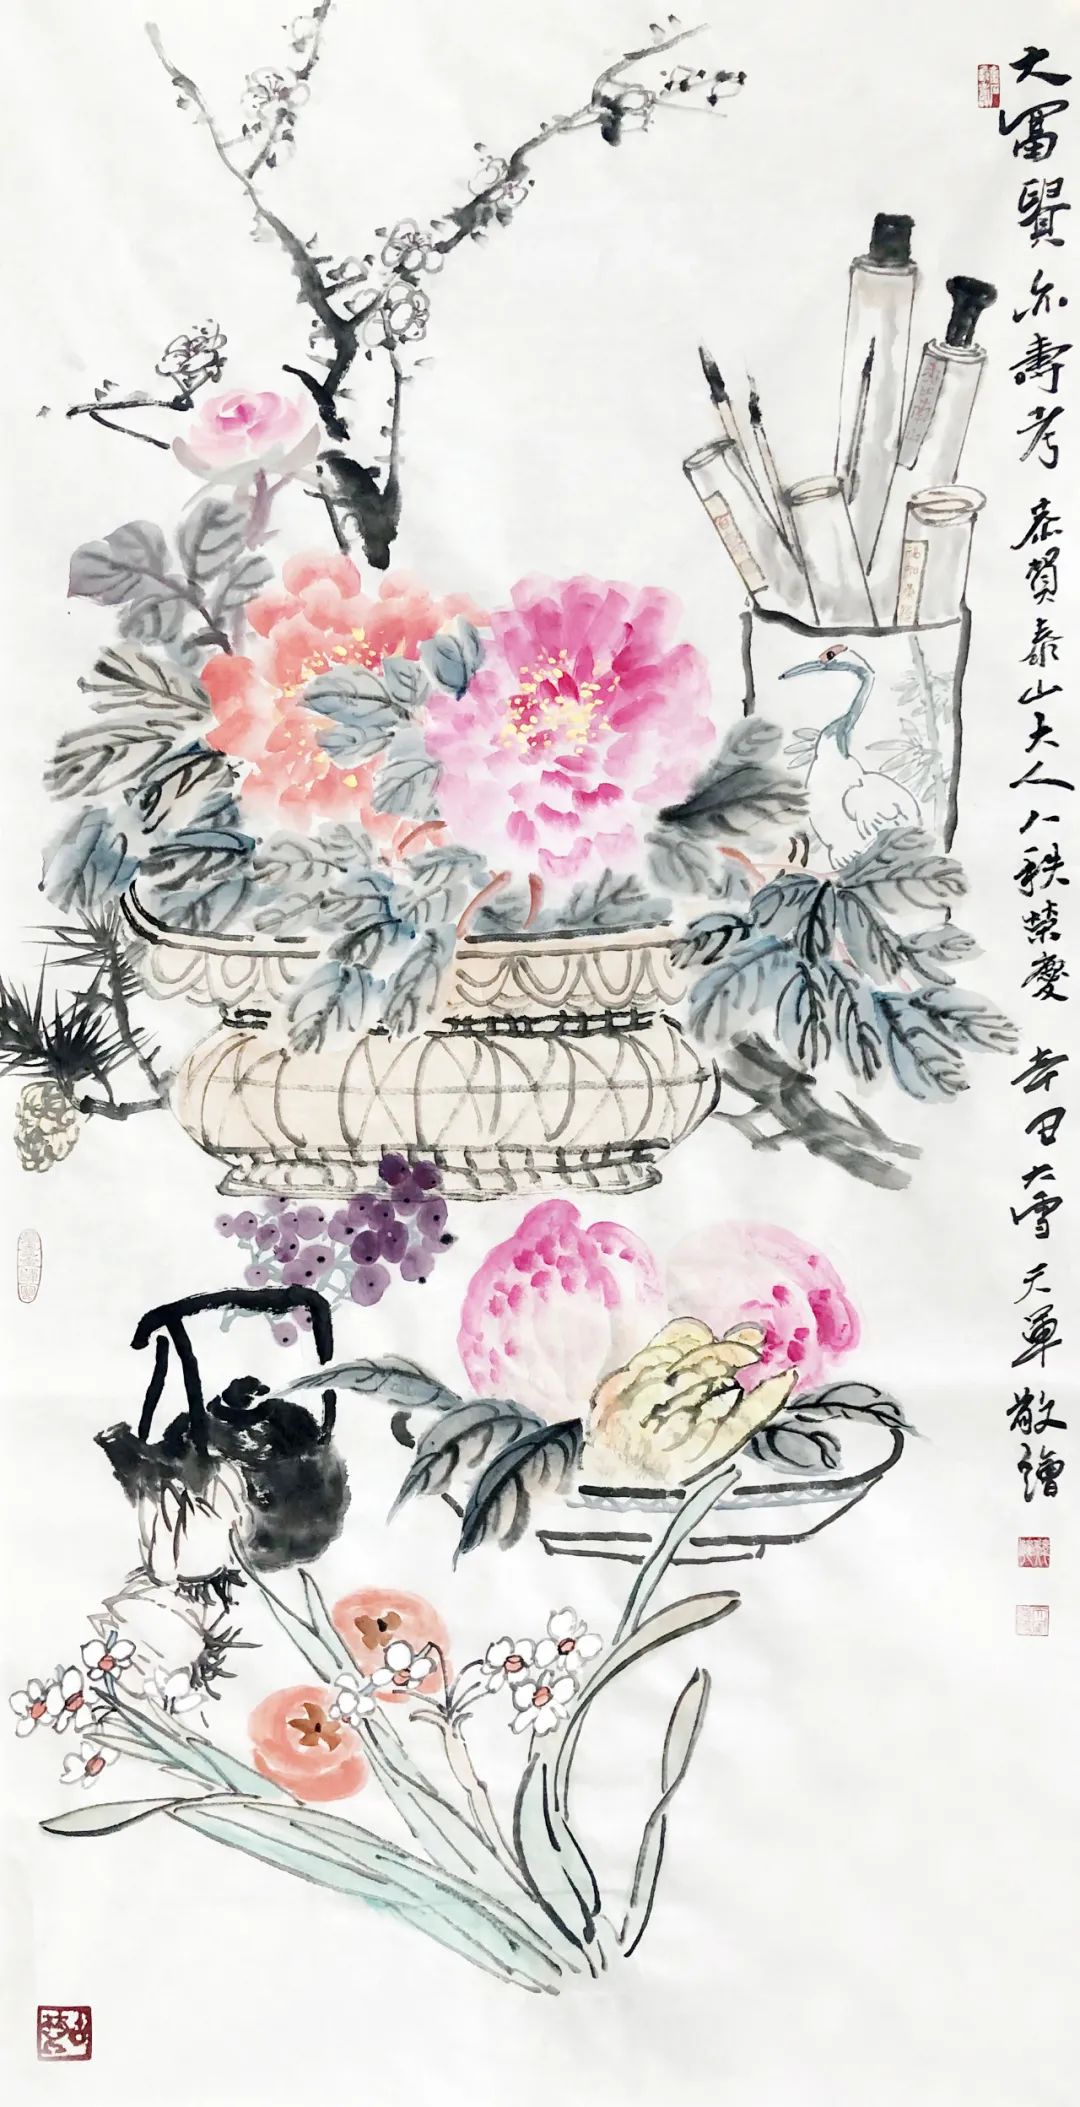 大富貴亦壽考 恭賀泰山大人八秩榮慶 辛丑大雪 天軍敬繪